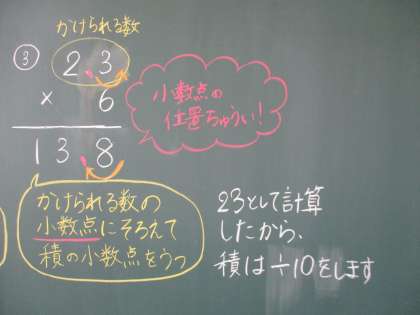 かけられる数
③ 2.3
× 6
13.8
小数点の
位置ちゅうい!
かけられる数の
小数点にそろえて
積の小数点をうつ
23として計算
したから、
積は÷10をします